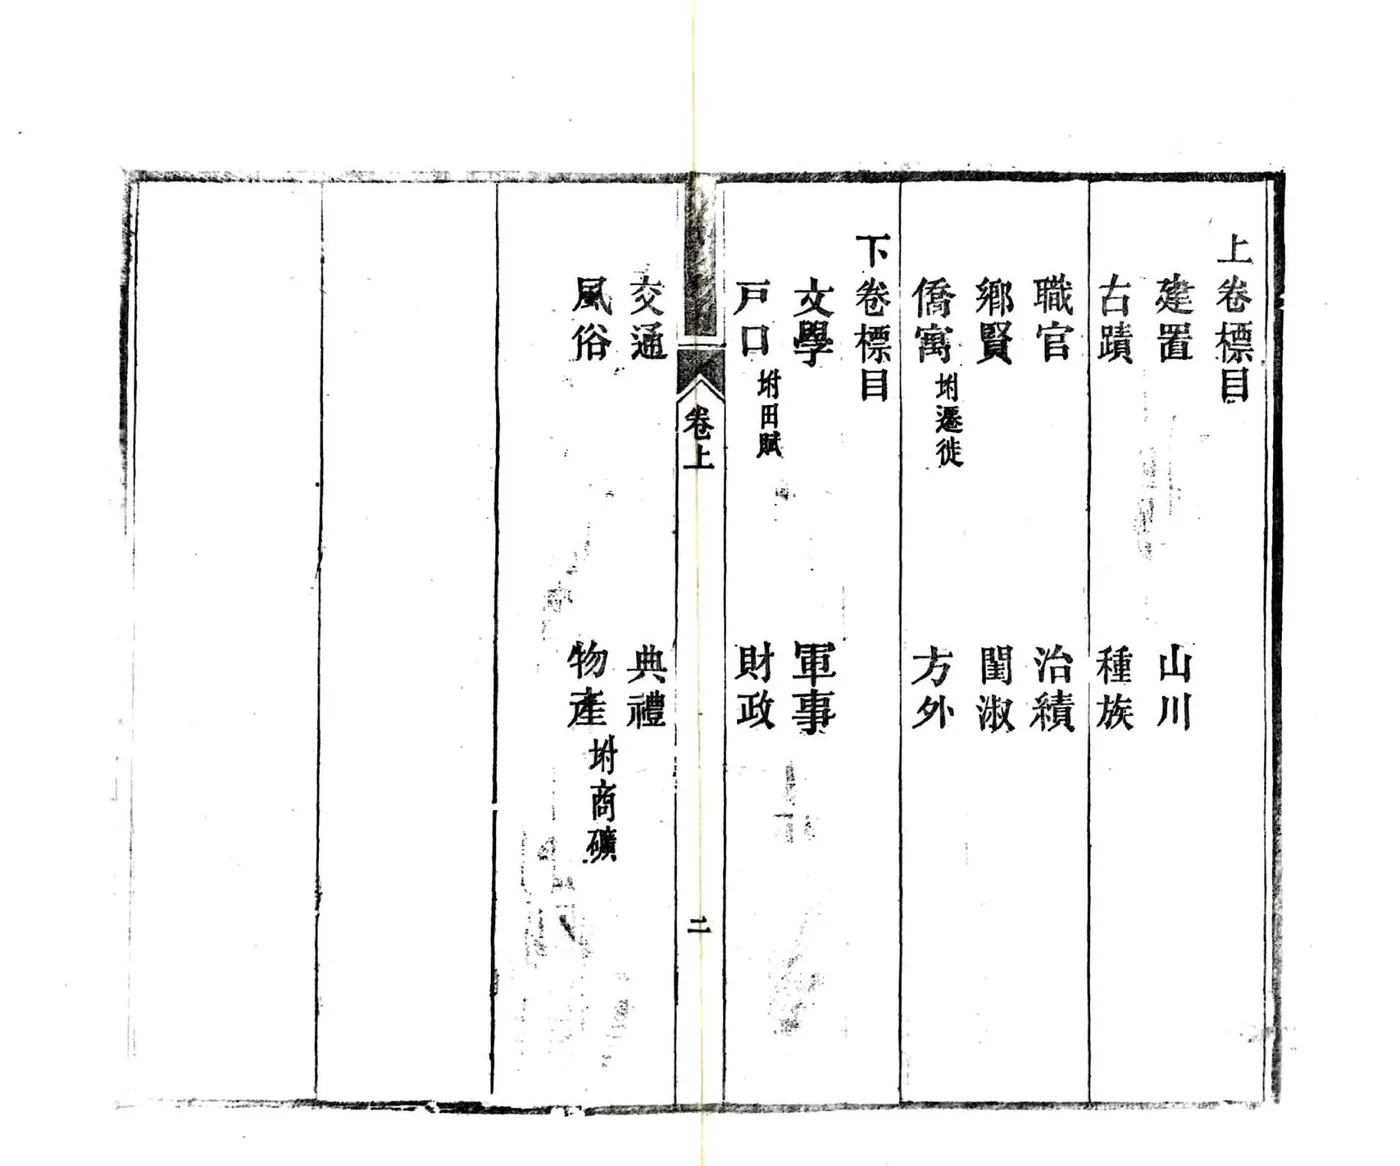 上卷標目
建置　山川
古蹟　種族
職官　治績
鄉賢　閨淑
僑寓坿遷徙　方外
下卷標目
文學　軍事
戸口坿田賦　財政
卷上　二
交通　典禮
風俗　物產坿商礦